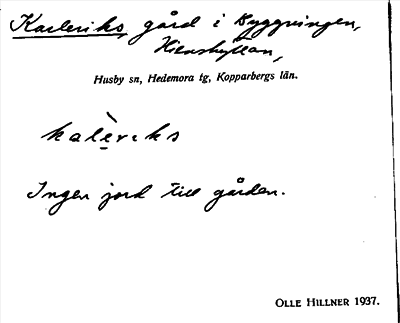 Karleriks, gård i Byggningen,
Kilenshyttan,
Husby sn, Hedemora tg, Kopparbergs län.
kalèrɩks
Ingen jord till gården.
OLLE HILLNER 1937.